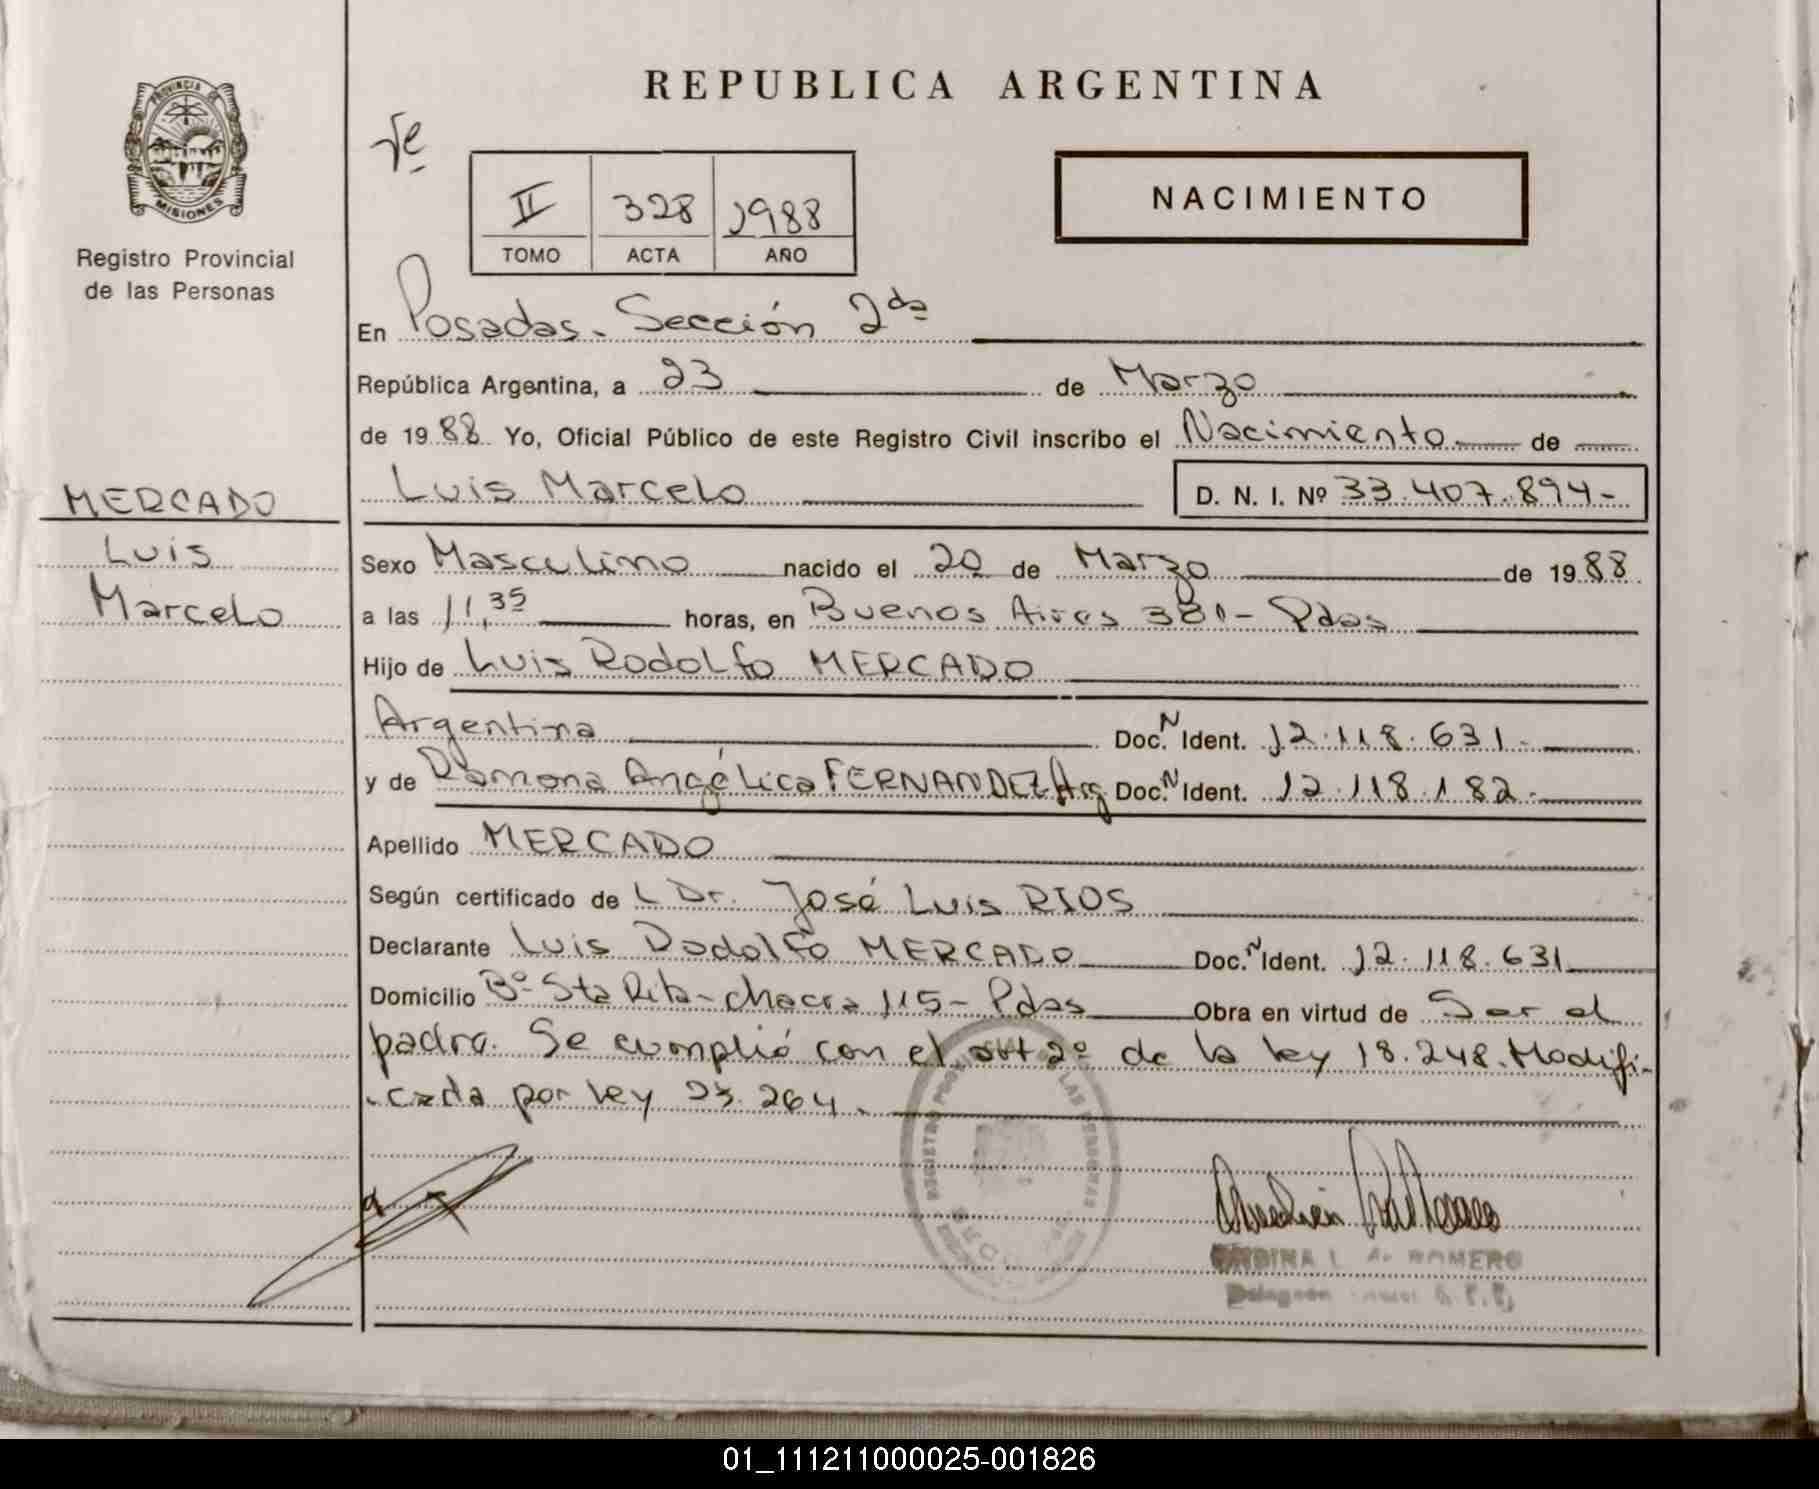 REPUBLICA ARGENTINA
PROVINCIA DE MISIONES
Registro Provincial
de las Personas
II 328 1988
TOMO ACTA AÑO
NACIMIENTO
En Posadas - Sección 2da
República Argentina, a 23 de Marzo
de 1988 Yo, Oficial Público de este Registro Civil inscribo el Nacimiento de
Luis Marcelo D. N. I. Nº 33.407.894-
MERCADO
Luis
Marcelo
Sexo Masculino nacido el 20 de Marzo de 1988
a las 11,35 horas, en Buenos Aires 381 - Pdas
Hijo de Luis Rodolfo MERCADO
Argentina Doc. N Ident. 12.118.631-
y de Ramona Angélica FERNANDEZ Arg Doc. N Ident. 12.118.182-
Apellido MERCADO
Según certificado de L Dr. José Luis RIOS
Declarante Luis Rodolfo MERCADO Doc. N Ident. 12.118.631
Domicilio Bº Sta Rita - chacra 115 - Pdas Obra en virtud de Ser el
padre. Se cumplió con el art 2º de la ley 18.248. Modifi-
-cada por ley 23.264.
REGISTRO PROVINCIAL DE LAS PERSONAS
ROMERO
01_111211000025-001826